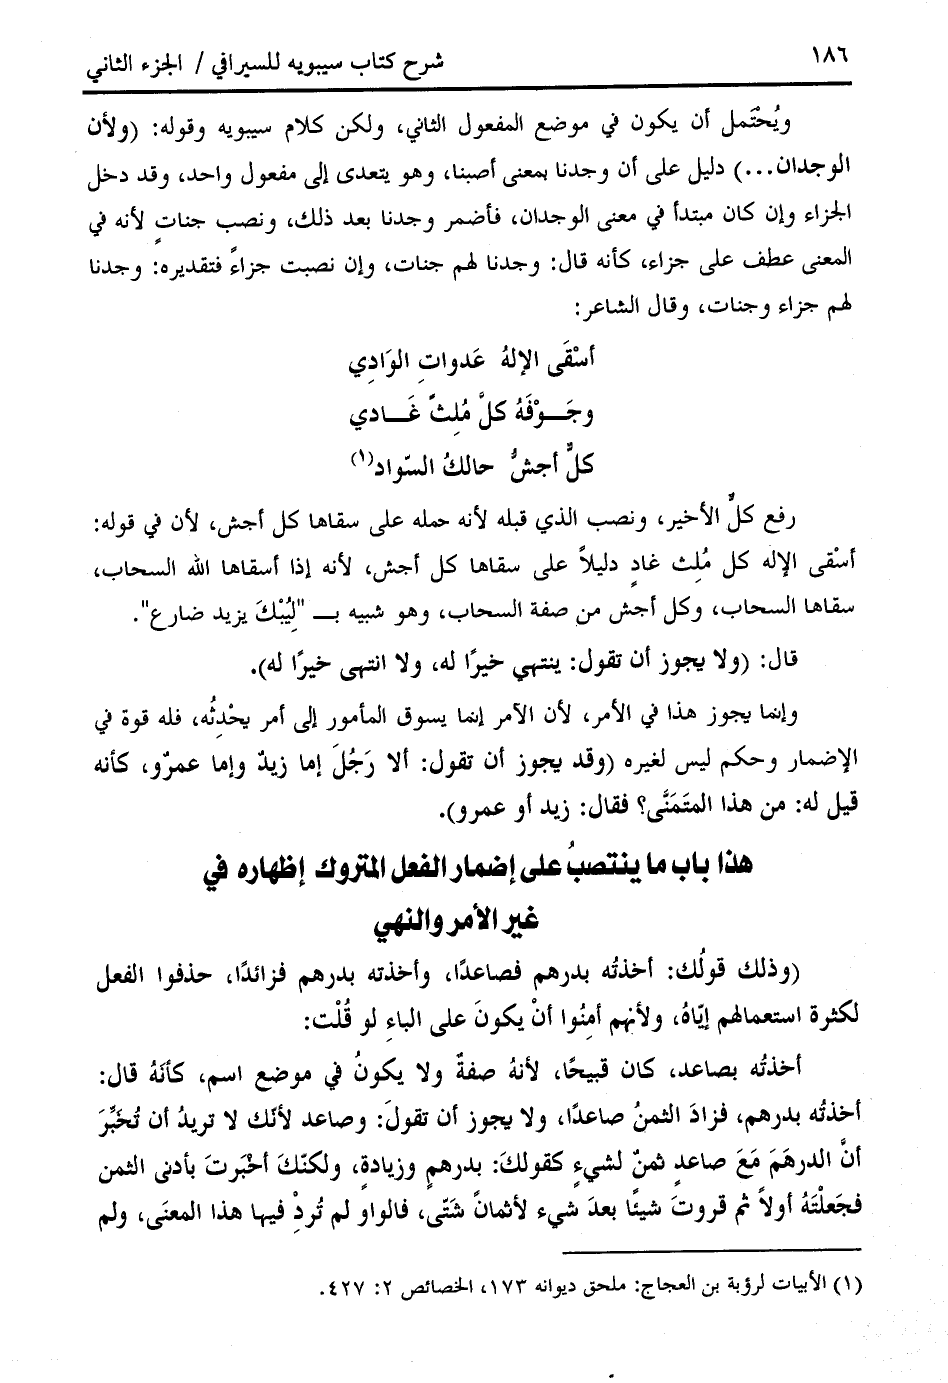 ١٨٦ شرح كتاب سيبويه للسيرافي / الجزء الثاني
ويُحْتَمل أن يكون في موضع المفعول الثاني، ولكن كلام سيبويه وقوله: (ولأن
الوجدان...) دليل على أن وجدنا بمعنى أصبنا، وهو يتعدى إلى مفعول واحد، وقد دخل
الجزاء وإن كان مبتدأ في معنى الوجدان، فأضمر وجدنا بعد ذلك، ونصب جناتٍ لأنه في
المعنى عطف على جزاء، كأنه قال: وجدنا لهم جنات، وإن نصبت جزاءً فتقديره: وجدنا
لهم جزاء وجنات، وقال الشاعر:
أسْقَى الإلهُ عَدواتِ الوَادِي
وجَـــوْفَهُ كلَّ مُلِثٍّ غَـــادي
كلُّ أجشُّ حالكُ السّواد(١)
رفع كلُّ الأخير، ونصب الذي قبله لأنه حمله على سقاها كل أجش، لأن في قوله:
أسْقى الإله كل مُلِث غادٍ دليلاً على سقاها كل أجش، لأنه إذا أسقاها الله السحاب،
سقاها السحاب، وكل أجش من صفة السحاب، وهو شبيه بـــ "لِيُبْكَ يزيد ضارع".
قال: (ولا يجوز أن تقول: ينتهي خيرًا له، ولا انتهى خيرًا له).
وإنما يجوز هذا في الأمر، لأن الآمر إنما يسوق المأمور إلى أمر يحْدِثُه، فله قوة في
الإضمار وحكم ليس لغيره (وقد يجوز أن تقول: ألا رَجُلَ إما زيدٌ وإما عمرٌو، كأنه
قيل له: من هذا المتَمَنَّى؟ فقال: زيد أو عمرو).
هذا باب ما ينتصبُ على إضمار الفعل المتروك إظهاره في
غير الأمر والنهي
(وذلك قولُك: أخذتُه بدرهم فصاعدًا، وأخذته بدرهم فزائدًا، حذفوا الفعل
لكثرة استعمالهم إيّاهُ، ولأنهم أمنُوا أنْ يكونَ على الباءِ لو قُلْت:
أخذتُه بصاعد، كان قبيحًا، لأنهُ صفةٌ ولا يكونُ في موضع اسم، كأنَهُ قال:
أخذتُه بدرهم، فزادَ الثمنُ صاعدًا، ولا يجوز أن تقولَ: وصاعد لأنّك لا تريدُ أن تُخَبِّرَ
أنَّ الدرهَمَ مَعَ صاعدٍ ثمنٌ لشيءٍ كقولكَ: بدرهمٍ وزيادةٍ، ولكنّكَ أخْبَرتَ بأدنى الثمن
فجَعلْتَهُ أولاً ثم قروتَ شيئًا بعدَ شيء لأثمانٍ شَتّى، فالواو لم تُردْ فيها هذا المعنَى، ولم
(١) الأبيات لرؤبة بن العجاج: ملحق ديوانه ١٧٣، الخصائص ٢: ٤٢٧.